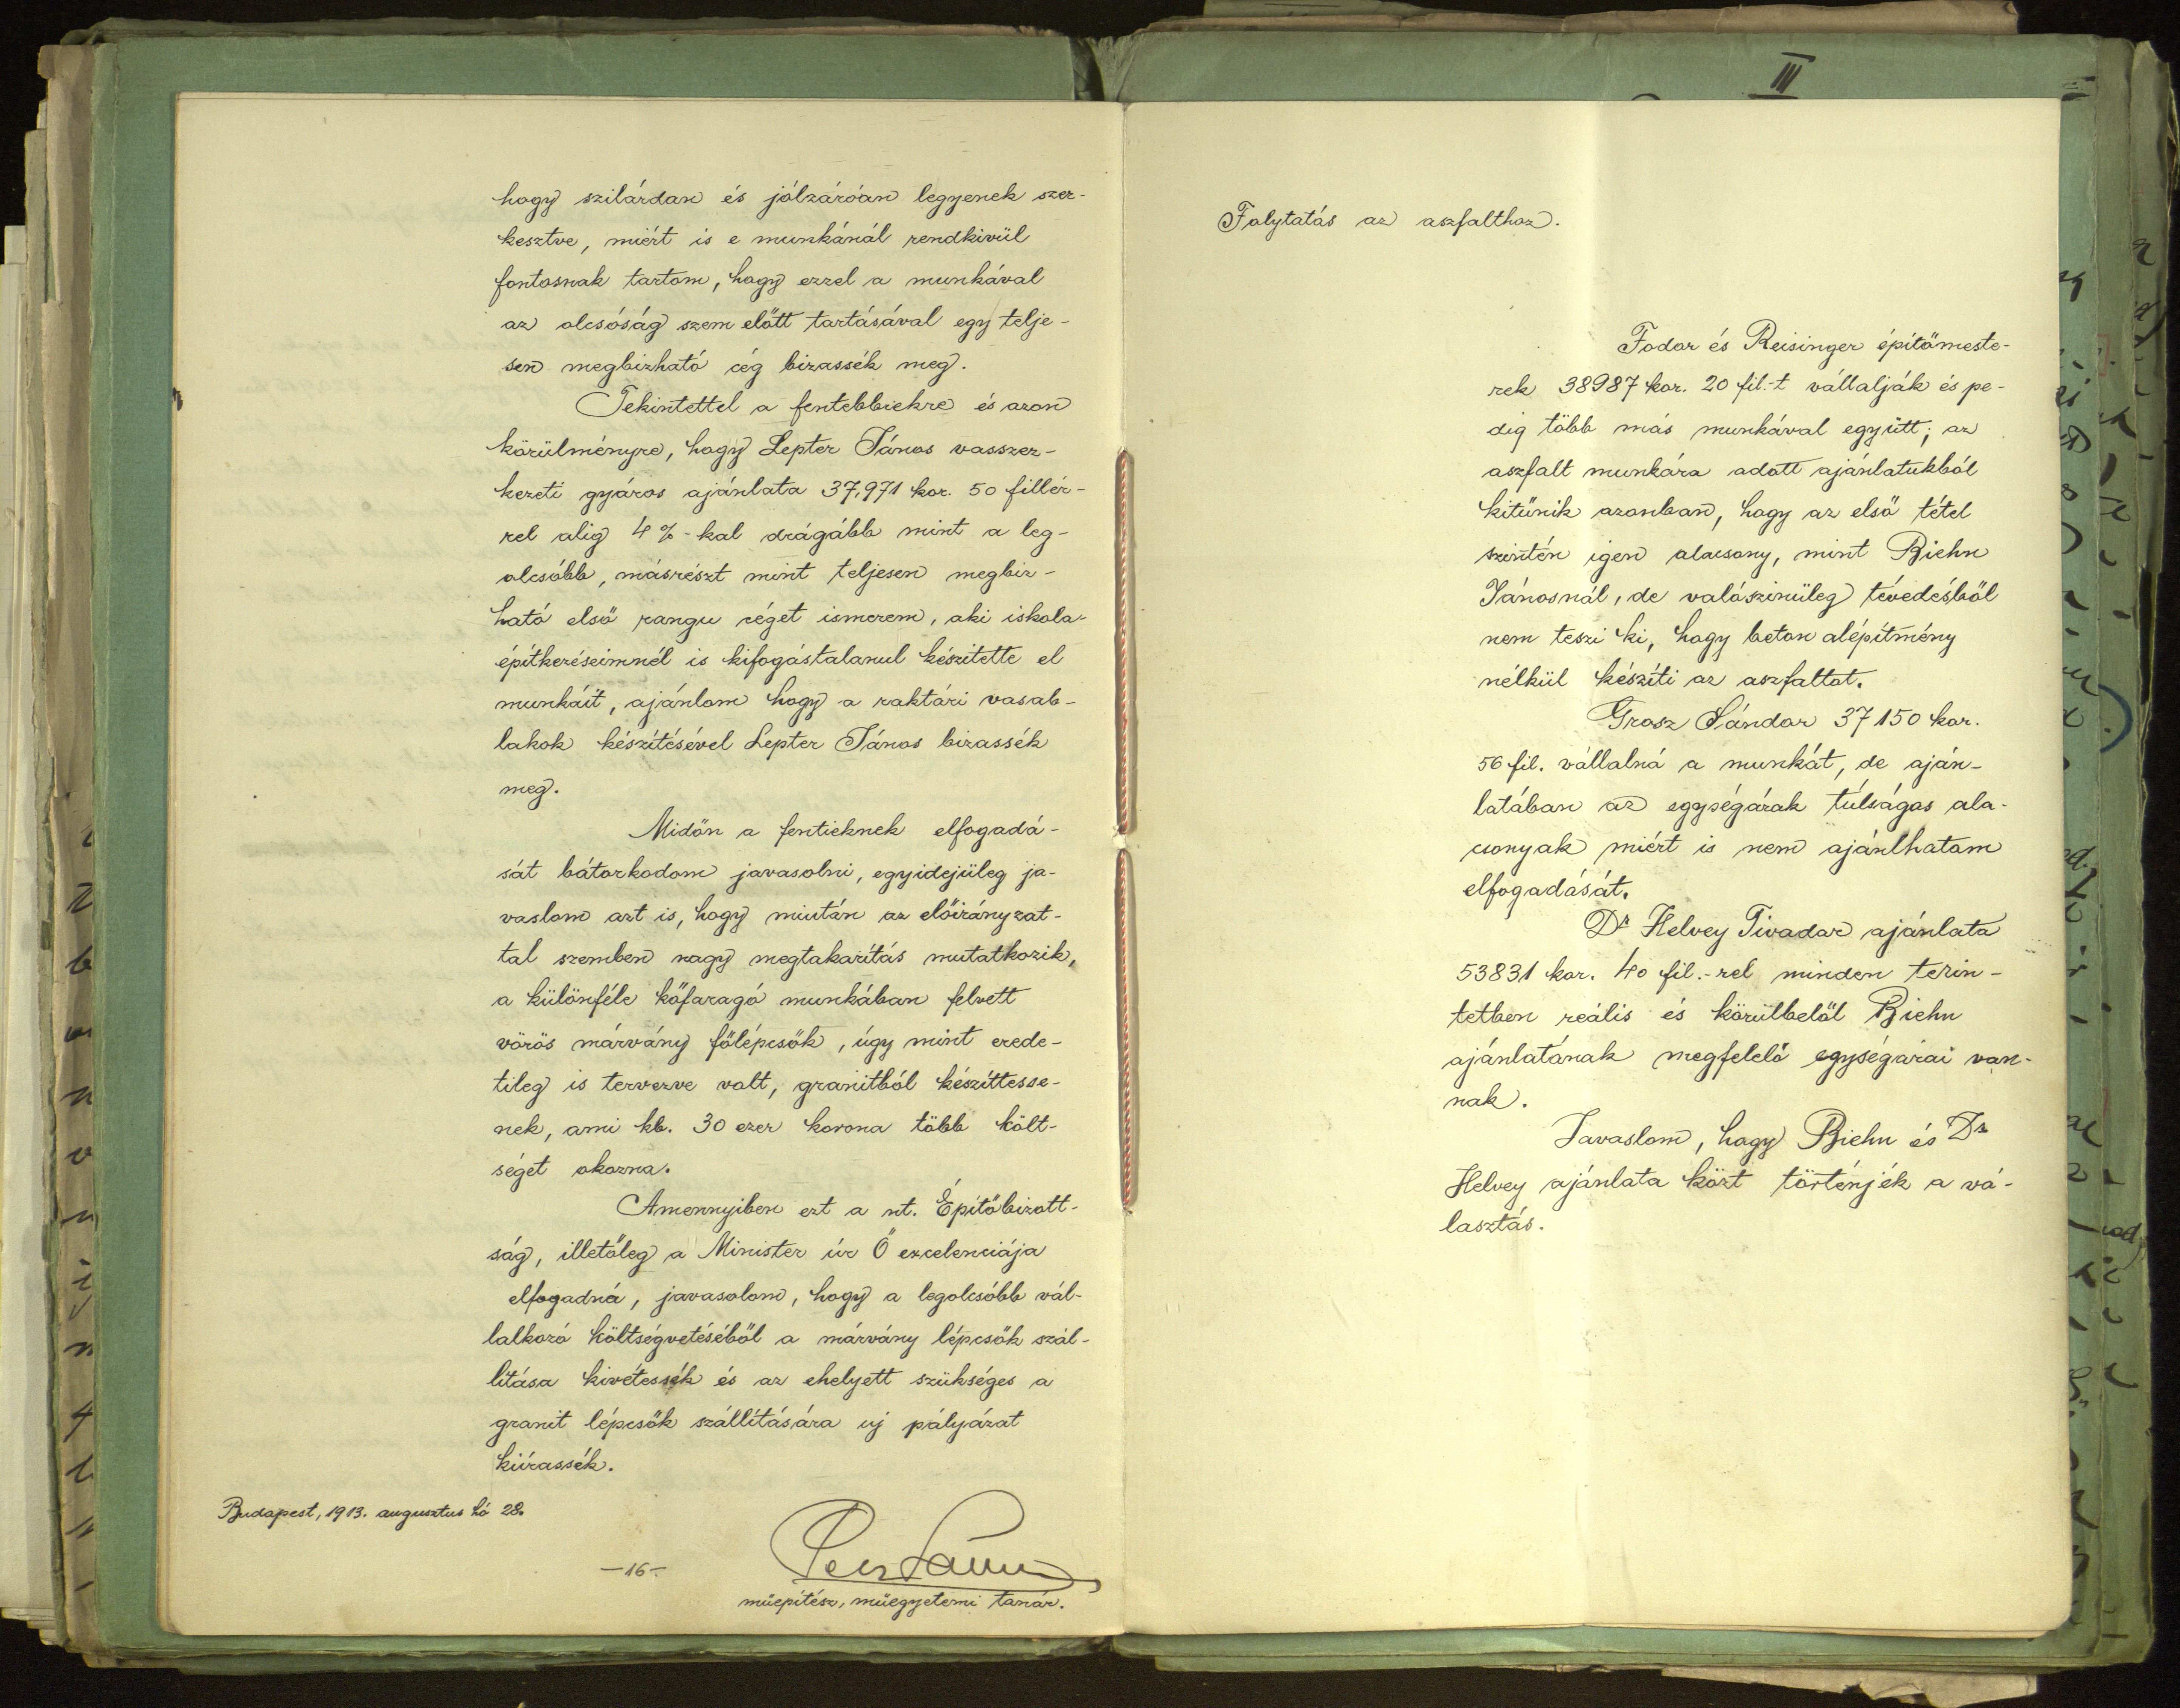 hogy szilárdan és jólzáróan legyenek szer-
kesztve, miért is e munkánál rendkivül
fontosnak tartom, hogy ezzel a munkával
az olcsóság szem előtt tartásával egy telje-
sen megbizható cég bizassék meg.
Tekintettel a fentebbiekre és azon
körülményre, hogy Lepter János vasszer-
kezeti gyáros ajánlata 37,971 kor. 50 fillér-
rel alig 4%-kal drágább mint a leg-
olcsóbb, másrészt mint teljesen megbiz-
ható első rangu céget ismerem, aki iskola-
építkezéseimnél is kifogástalanul készítette el
munkáit, ajánlom hogy a raktári vasab-
lakok készítésével Lepter János bizassék
meg.
Midőn a fentieknek elfogadá-
sát bátorkodom javasolni, egyidejüleg ja-
vaslom azt is, hogy miután az előirányzat-
tal szemben nagy megtakarítás mutatkozik,
a különféle kőfaragó munkában felvett
vörös márvány főlépcsők, úgy mint erede-
tileg is tervezve volt, granitból készíttesse-
nek, ami kb. 30 ezer korona több költ-
séget okozna.
Amennyiben ezt a nt. Épitőbizott-
ság, illetőleg a Minister úr Ő excelenciája
elfogadná, javasolom, hogy a legolcsóbb vál-
lalkozó költségvetéséből a márvány lépcsők szál-
lítása kivétessék és az ehelyett szükséges a
granit lépcsők szállítására uj pályázat
kiirassék.
Budapest, 1913. augusztus hó 28.
-16-
Pecz Samu
műepítész, műegyetemi tanár.
III
Folytatás az aszfalthoz.
Fodor és Reisinger építőmeste-
rek 38987 kor. 20 fil-t vállalják és pe-
dig több más munkával együtt; az
aszfalt munkára adott ajánlatukból
kitűnik azonban, hogy az első tétel
szintén igen alacsony, mint Biehn
Jánosnál, de valószinüleg tévedésből
nem teszi ki, hogy beton alépítmény
nélkül készíti az aszfaltot.
Grosz Sándor 37150 kor.
56 fil. vállalná a munkát, de aján-
latában az egységárak túlságos ala-
csonyak miért is nem ajánlhatom
elfogadását.
Dr Helvey Tivadar ajánlata
53831 kor. 40 fil.-rel minden tekin-
tetben reális és körülbelől Biehn
ajánlatának megfelelő egységárai van-
nak.
Javaslom, hogy Biehn és Dr
Helvey ajánlata közt történjék a vá-
lasztás.